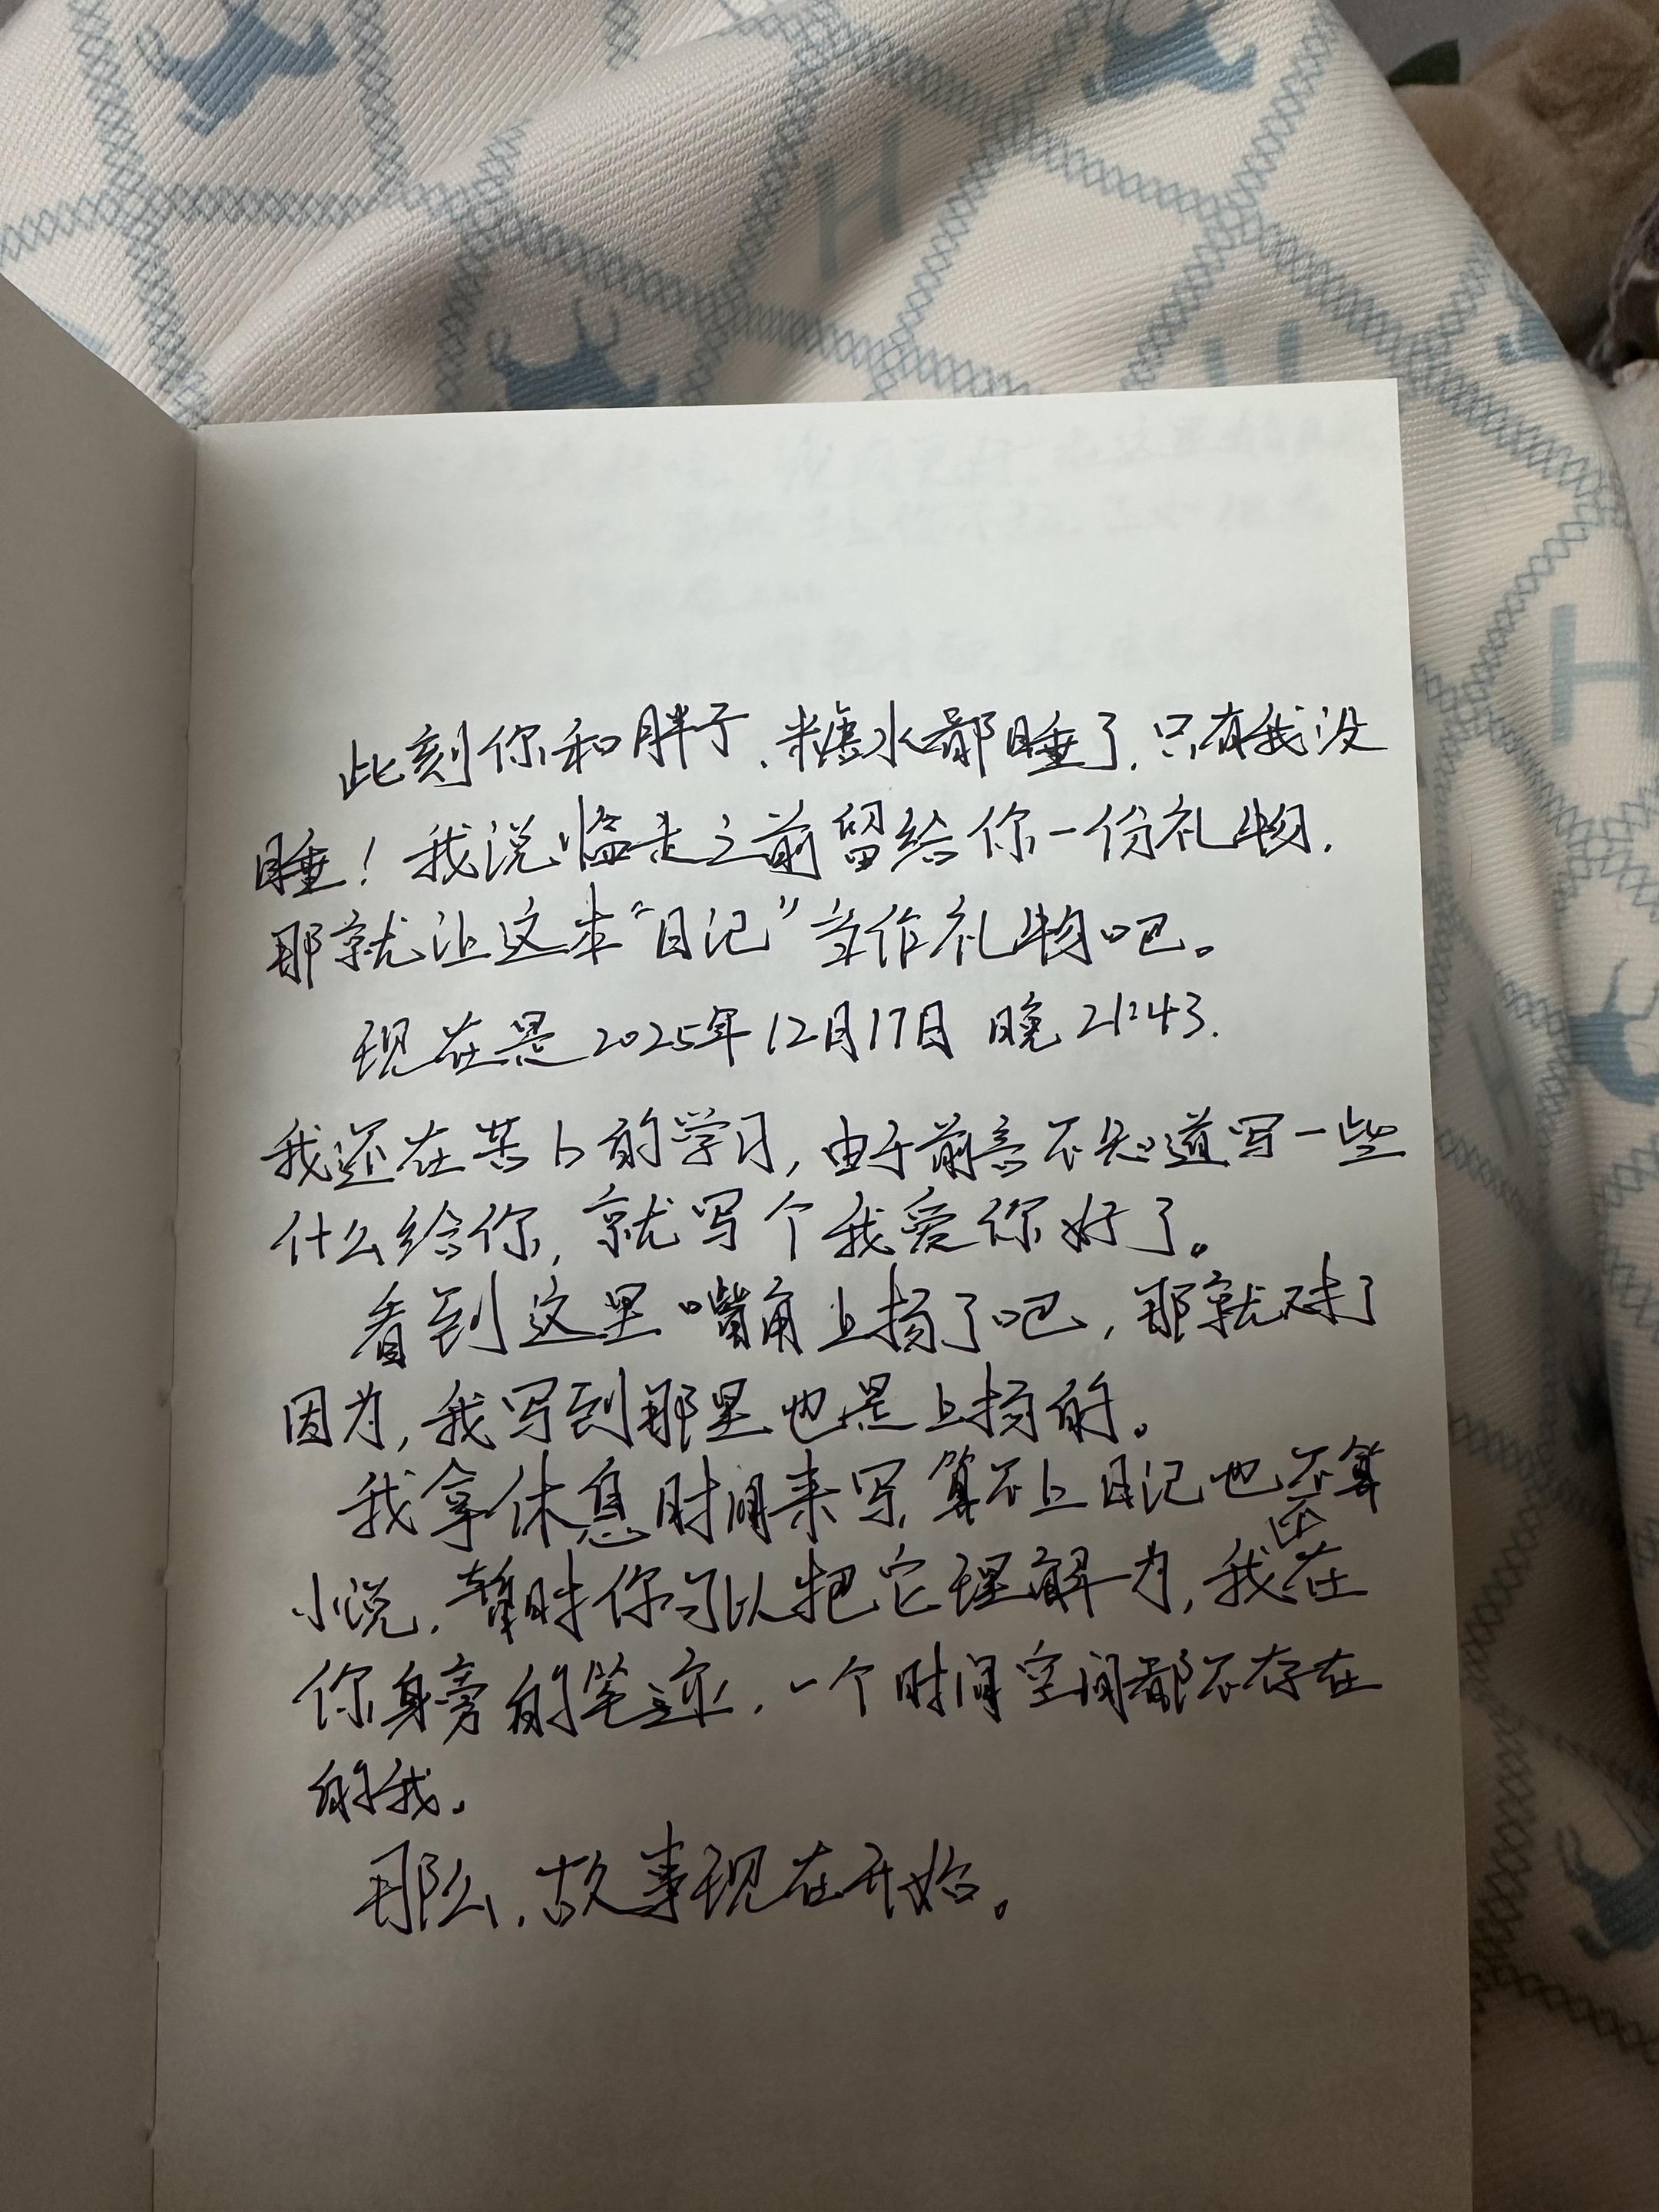 此刻你和胖子、糖水都睡了,只有我没
睡!我说临走之前留给你一份礼物.
那就让这本“日记”当作礼物吧。
现在是2025年12月17日 晚21:43.
我还在苦b的学习,由于前言不知道写一些
什么给你,就写个我爱你好了。
看到这里嘴角上扬了吧,那就对了
因为,我写到那里也是上扬的。
我拿休息时间来写,算不上日记也不算
小说,暂时你可以把它理解为,我不在
你身旁的笔迹,一个时间空间都不存在
的我。
那么,故事现在开始。
H
H
H